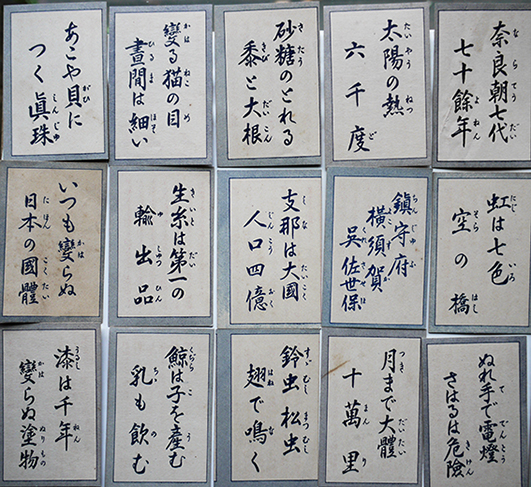 奈良朝七代
七十餘年
太陽の熱
六千度
砂糖のとれる
黍と大根
變る猫の目
晝間は細い
あこや貝に
つく眞珠
虹は七色
空の橋
鎮守府
横須賀
呉佐世保
支那は大國
人口四億
生糸は第一の
輸出品
いつも變らぬ
日本の國體
ぬれ手で電燈
さはるは危險
月まで大體
十萬里
鈴虫松虫
翅で鳴く
鯨は子を産む
乳も飲む
漆は千年
變らぬ塗物